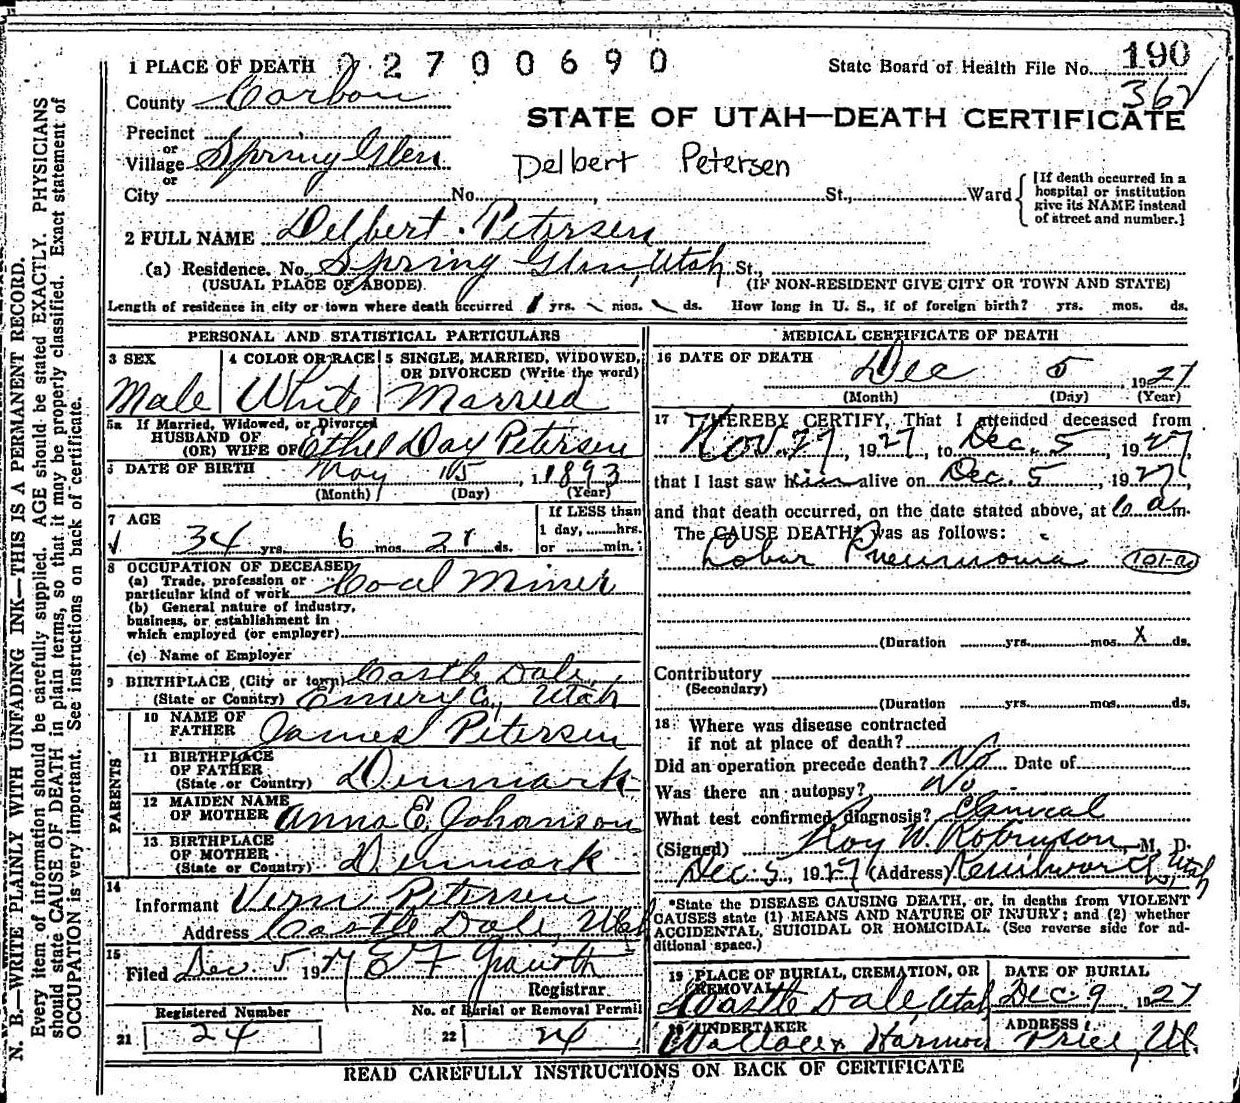 N. B.—WRITE PLAINLY WITH UNFADING INK—THIS IS A PERMANENT RECORD.
Every item of information should be carefully supplied. AGE should be stated EXACTLY. PHYSICIANS
should state CAUSE OF DEATH in plain terms, so that it may be properly classified. Exact statement of
OCCUPATION is very important. See instructions on back of certificate.
1 PLACE OF DEATH 02700690
State Board of Health File No. 190
362
County Carbon
STATE OF UTAH—DEATH CERTIFICATE
Precinct
or
Village Spring Glen
or
Delbert Petersen
City No. St., Ward
[If death occurred in a
hospital or institution
give its NAME instead
of street and number.]
2 FULL NAME Delbert Petersen
(a) Residence. No. Spring Glen, Utah St.,
(USUAL PLACE OF ABODE) (IF NON-RESIDENT GIVE CITY OR TOWN AND STATE)
Length of residence in city or town where death occurred 1 yrs. mos. ds. How long in U. S., if of foreign birth? yrs. mos. ds.
PERSONAL AND STATISTICAL PARTICULARS
3 SEX
Male
4 COLOR OR RACE
White
5 SINGLE, MARRIED, WIDOWED,
OR DIVORCED (Write the word)
Married
5a If Married, Widowed, or Divorced
HUSBAND OF
(OR) WIFE OF Ethel Day Petersen
6 DATE OF BIRTH May 15, 1893
(Month) (Day) (Year)
7 AGE
34 yrs. 6 mos. 21 ds.
If LESS than
1 day, hrs.
or min.
8 OCCUPATION OF DECEASED
(a) Trade, profession or
particular kind of work Coal Miner
(b) General nature of industry,
business, or establishment in
which employed (or employer)
(c) Name of Employer
9 BIRTHPLACE (City or town) Castle Dale,
(State or Country) Emery Co., Utah
PARENTS
10 NAME OF
FATHER James Petersen
11 BIRTHPLACE
OF FATHER
(State or Country) Denmark
12 MAIDEN NAME
OF MOTHER Anna E. Johanson
13 BIRTHPLACE
OF MOTHER
(State or Country) Denmark
14
Informant Vern Petersen
Address Castle Dale, Utah
15
Filed Dec. 5 1927 E F
Registrar
Registered Number
21 24
No. of Burial or Removal Permit
22 24
MEDICAL CERTIFICATE OF DEATH
16 DATE OF DEATH
Dec 5 1927
(Month) (Day) (Year)
17 I HEREBY CERTIFY, That I attended deceased from
Nov. 27, 1927, to Dec. 5, 1927,
that I last saw him alive on Dec. 5, 1927,
and that death occurred, on the date stated above, at 6 am.
The CAUSE DEATH* was as follows:
Lobar Pneumonia 101-a
(Duration yrs. mos. X ds.
Contributory
(Secondary)
(Duration yrs. mos. ds.
18 Where was disease contracted
if not at place of death?
Did an operation precede death? No Date of
Was there an autopsy? No
What test confirmed diagnosis? Clinical
(Signed) Roy W. Robinson, M. D.
Dec. 5, 1927 (Address) Kenilworth, Utah
*State the DISEASE CAUSING DEATH, or, in deaths from VIOLENT
CAUSES state (1) MEANS AND NATURE OF INJURY; and (2) whether
ACCIDENTAL, SUICIDAL OR HOMICIDAL. (See reverse side for ad-
ditional space.)
19 PLACE OF BURIAL, CREMATION, OR
REMOVAL
Castle Dale, Utah
DATE OF BURIAL
Dec. 9 1927
20 UNDERTAKER
Wallace Harmon
ADDRESS
Price, Ut.
READ CAREFULLY INSTRUCTIONS ON BACK OF CERTIFICATE